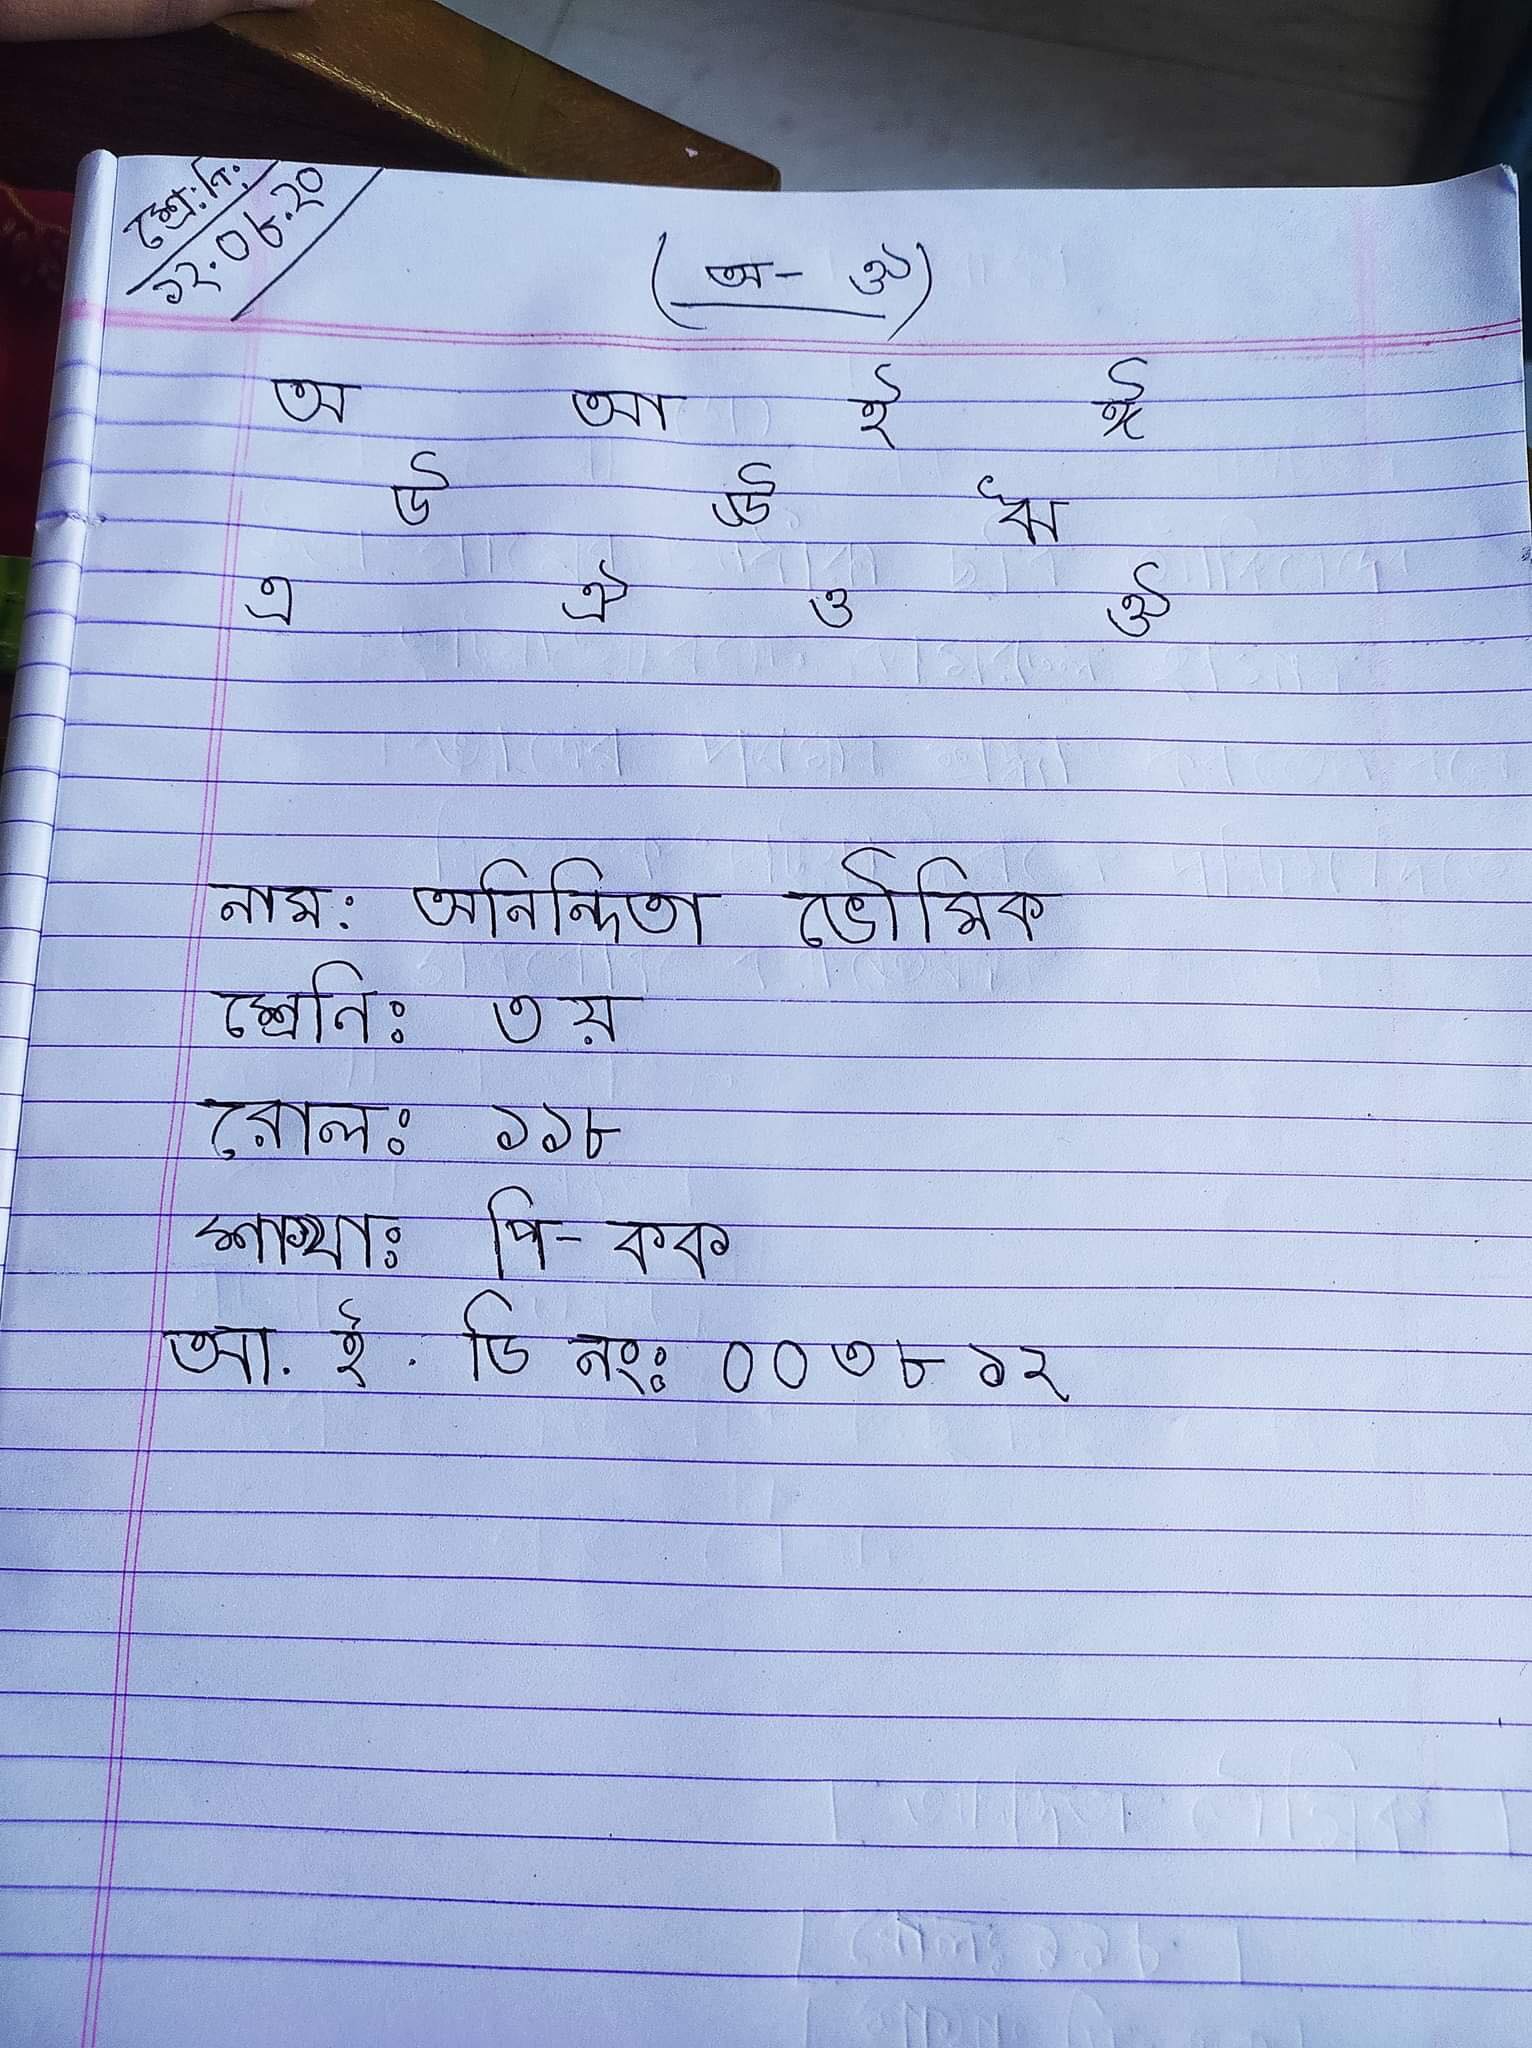 শ্রে:নি:
১২.০৮.২০
(অ- ঔ)
অ আ ই ঈ
উ ঊ ঋ
এ ঐ ও ঔ
নাম: অনিন্দিতা ভৌমিক
শ্রেনিঃ ৩য়
রোলঃ ১১৮
শাখাঃ পি- কক
আ. ই. ডি নংঃ ০০৩৮১২